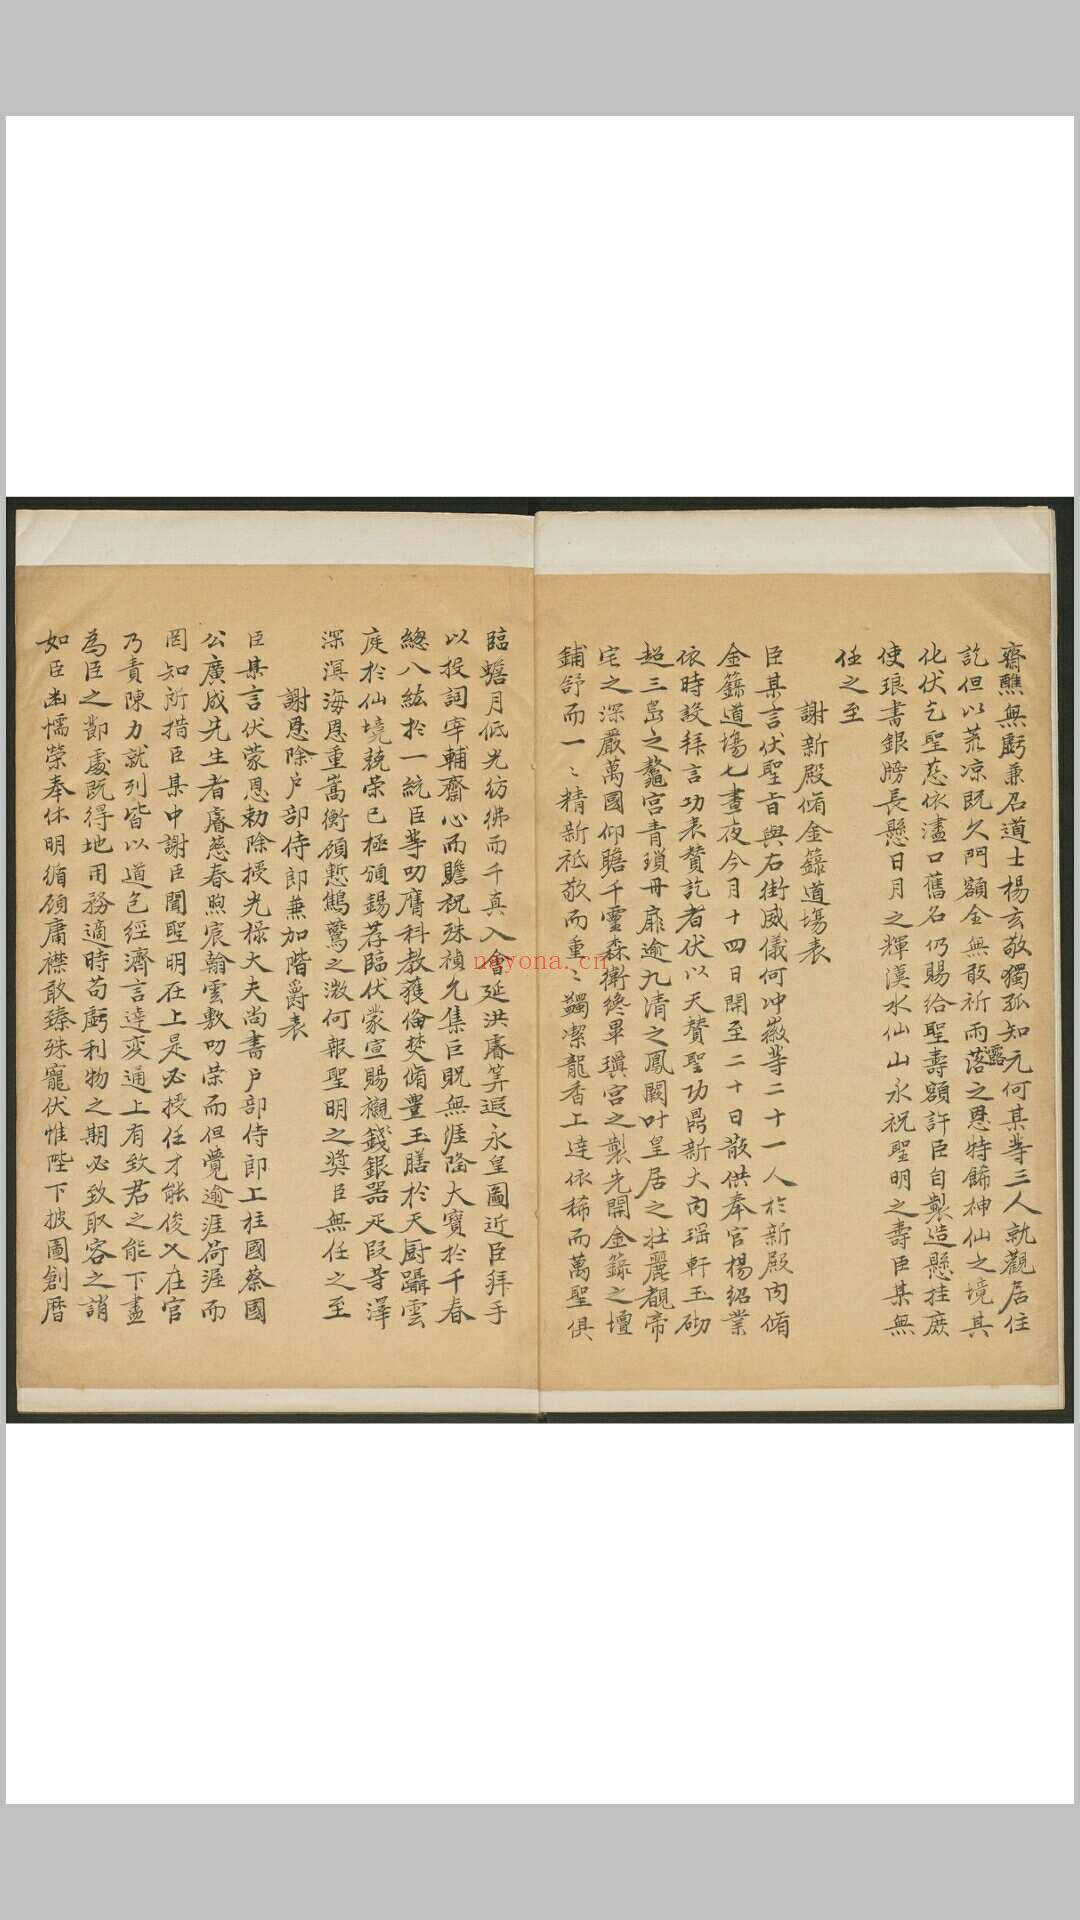 齋醮無虧兼召道士楊玄敬獨孤知元何某等三人就觀居住
訖但以荒凉既久門額全無敢祈雨露落之恩特飾神仙之境其
化伏乞聖慈依瀘口舊名仍賜給聖壽額許臣自製造懸挂庶
使琅書銀牓長懸日月之輝漢水仙山永祝聖明之壽臣某無
任之至
謝新殿脩金籙道塲表
臣某言伏聖旨與右街威儀何冲徽等二十一人於新殿內脩
金籙道塲七晝夜今月十四日開至二十日散供奉官楊紹業
依時設拜言功表贊訖者伏以天贊聖功鼎新大內瑶軒玉砌
超三島之鼇宮青瑣丹扉逾九清之鳳闕叶皇居之壯麗覩帝
宅之深嚴萬國仰瞻千靈森衛終畢璸宮之製先開金籙之壇
鋪舒而一〻精新祗敬而重〻蠲潔龍香上達依稀而萬聖俱
臨蟾月低光彷彿而千真入會延洪睿筭遐永皇圖近臣拜手
以投詞宰輔齋心而贍祝殊禎允集巨貺無涯隆大寶於千春
緫八紘於一統臣等叨膺科教獲俻焚脩豊玉膳於天厨躡雲
庭於仙境兢榮已極頒錫荐臨伏蒙宣賜襯錢銀器疋段等澤
深溟海恩重嵩衡頋慙鶬鷖之㵎何報聖明之奬臣無任之至
謝恩除户部侍郎兼加階爵表
臣某言伏蒙恩勅除授光祿大夫尚書户部侍郎上柱國蔡國
公廣成先生者睿慈春煦宸翰雲敷叨榮而但覺逾涯荷渥而
罔知所措臣某中謝臣聞聖明在上是必授任才能俊乂在官
乃責陳力就列皆以道色經濟言達変通上有致君之能下盡
為臣之鄙處既得地用務適時苟虧利物之期必致取容之誚
如臣凾懦榮奉休明循頋庸襟敢臻殊寵伏惟陛下披圖創曆
neyona.cn